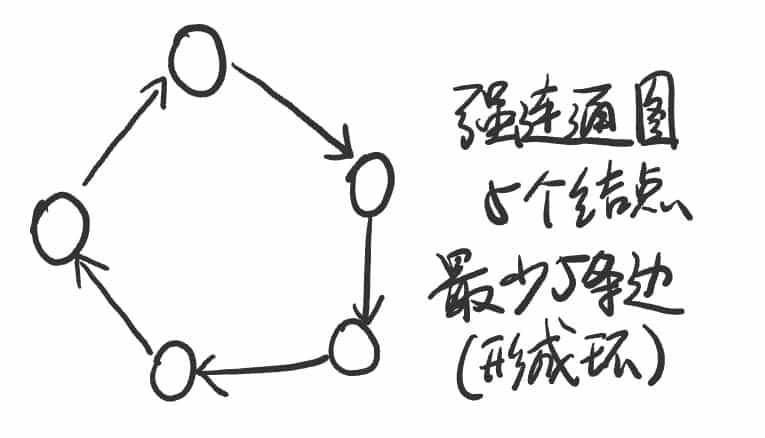 强连通图
5个结点
最少5条边
(形成环)